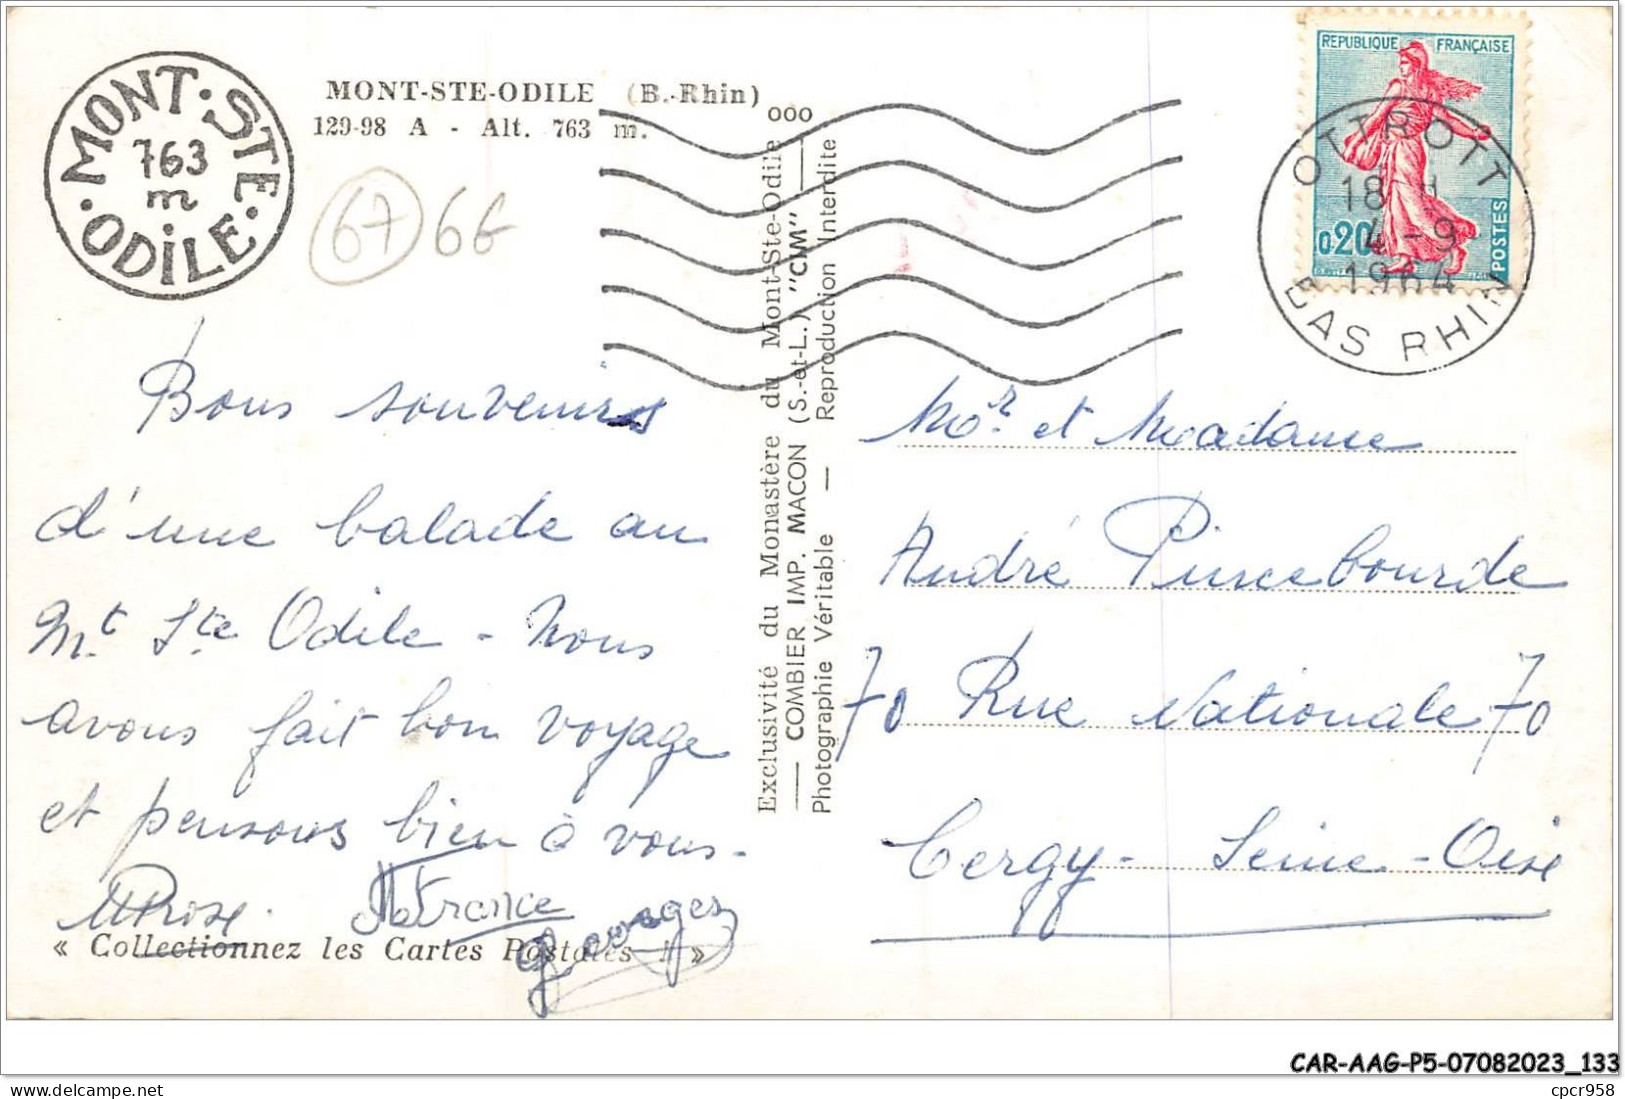 MONT·STE·ODILE·
763
m
MONT-STE-ODILE (B.-Rhin)
129-98 A - Alt. 763 m.
67 66
Bons souvenirs
d'une balade au
Mt Ste Odile - Nous
avons fait bon voyage
et pensons bien à vous.
France
Georges
« Collectionnez les Cartes Postales ! »
ooo
Exclusivité du Monastère du Mont-Ste-Odile
— COMBIER IMP. MACON (S.-et-L.) "CIM" —
Photographie Véritable — Reproduction Interdite
REPUBLIQUE FRANÇAISE
0.20
POSTES
OTTROTT
18 H
4 - 9
1964
BAS RHIN
Mr. et Madame
André Pincebourde
70 Rue Nationale 70
Cergy - Seine-Oise
CAR-AAG-P5-07082023_133
cpcr958